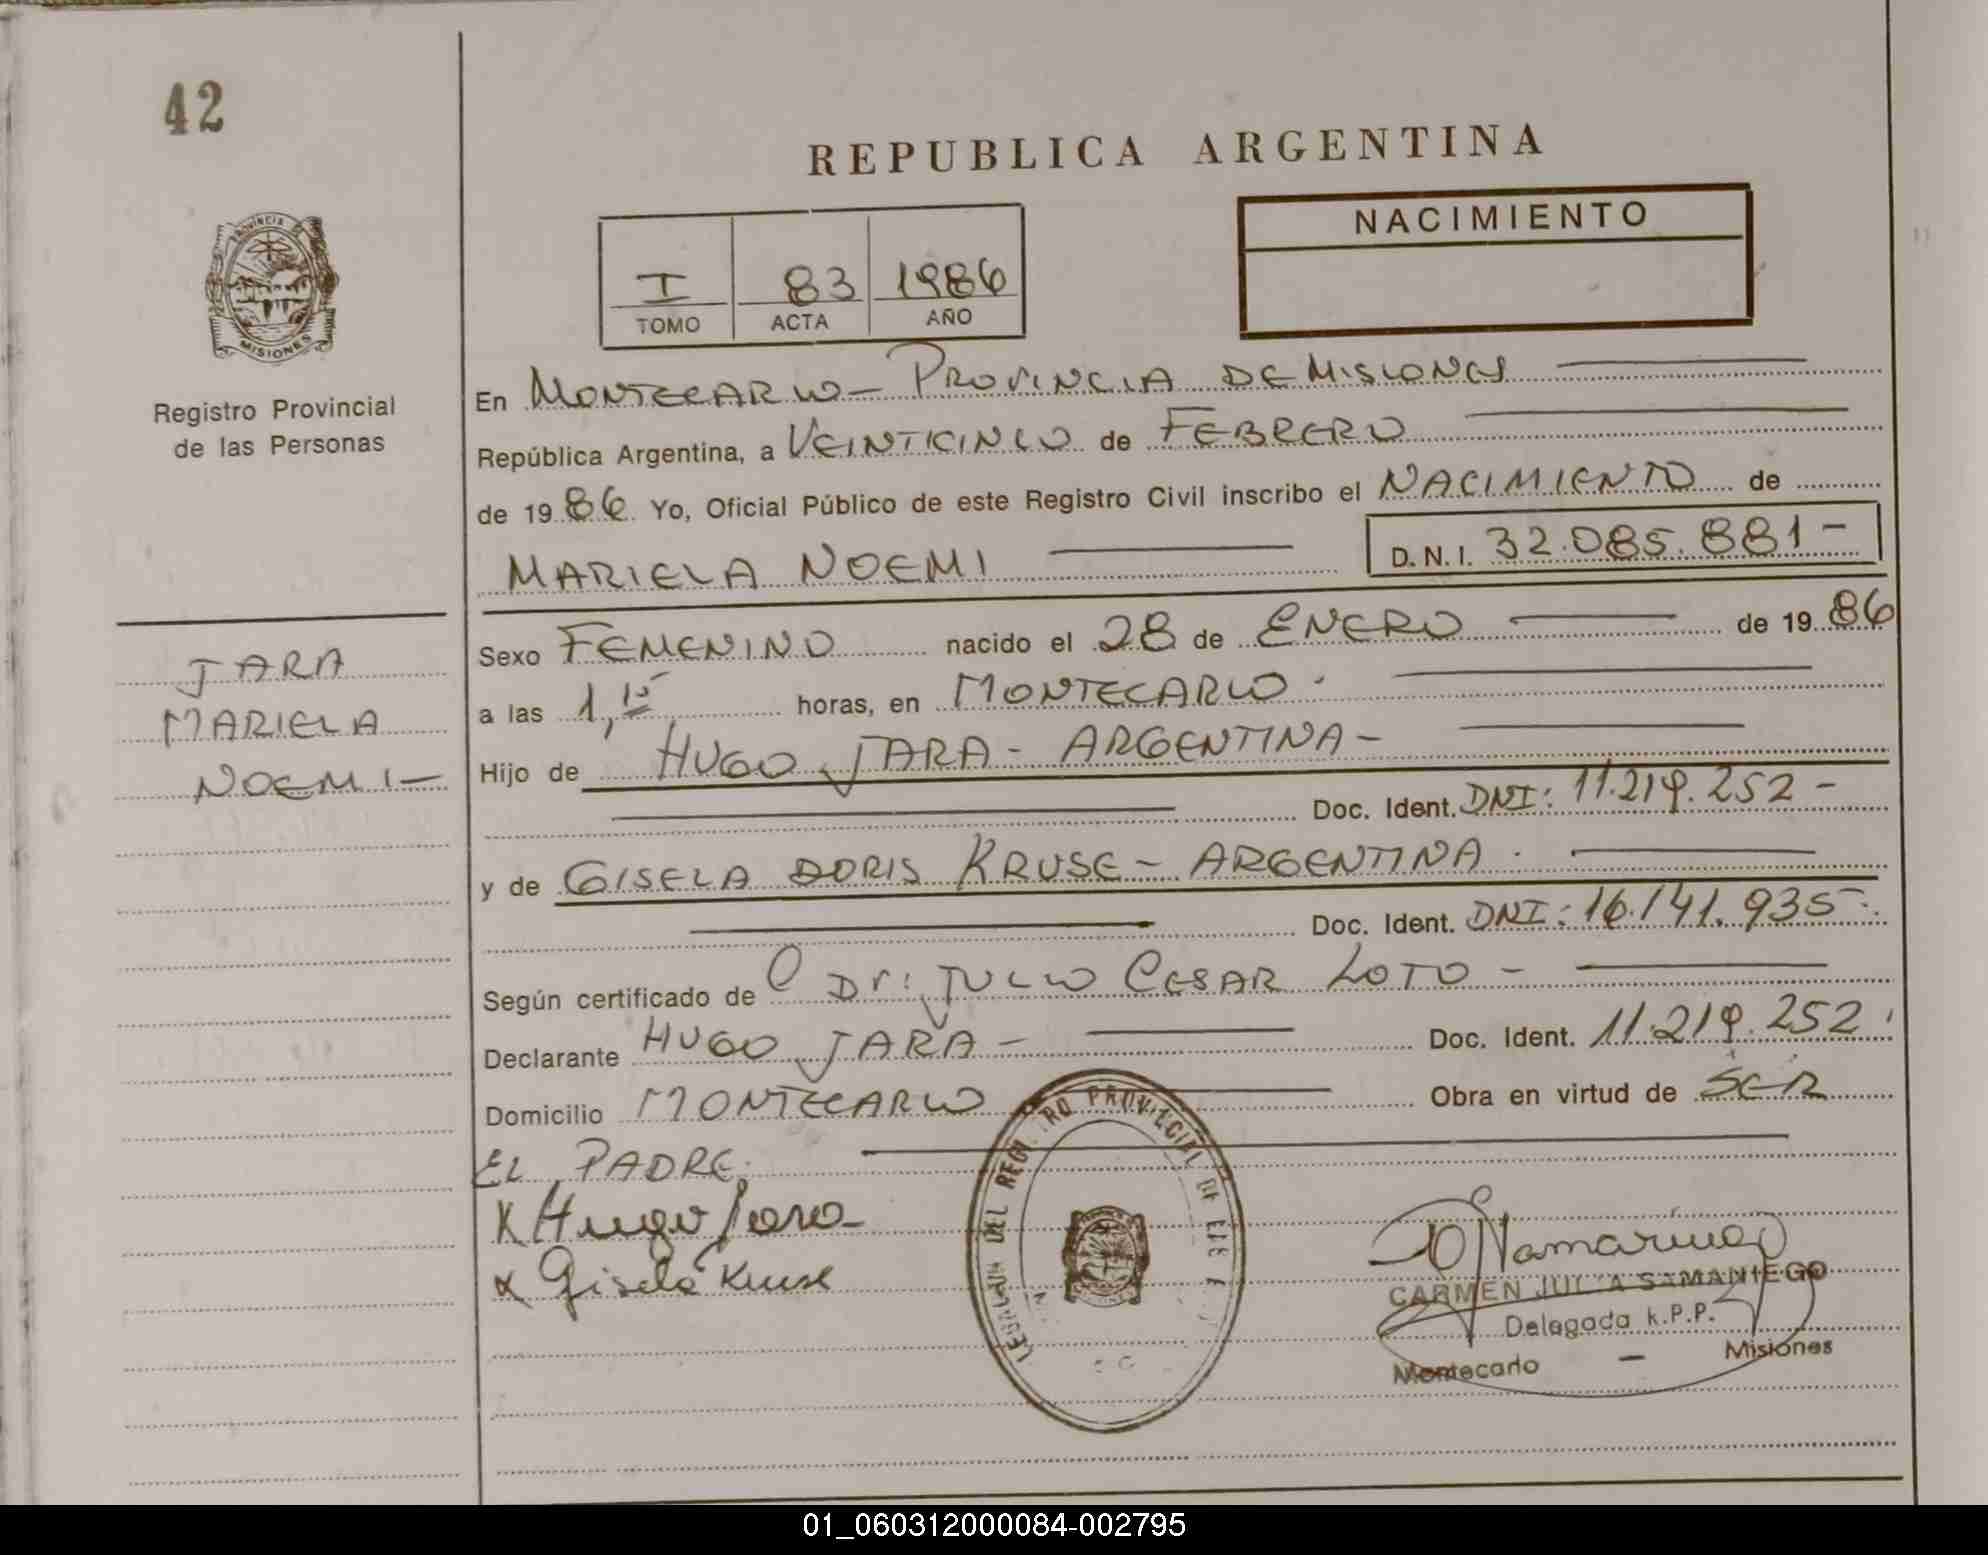 42
REPUBLICA ARGENTINA
NACIMIENTO
I 83 1986
TOMO ACTA AÑO
PROVINCIA
MISIONES
Registro Provincial
de las Personas
En MONTECARLO - PROVINCIA DE MISIONES
República Argentina, a VEINTICINCO de FEBRERO
de 1986 Yo, Oficial Público de este Registro Civil inscribo el NACIMIENTO de
MARIELA NOEMI D.N.I. 32.085.881-
JARA
MARIELA
NOEMI-
Sexo FEMENINO nacido el 28 de ENERO de 1986
a las 1,15 horas, en MONTECARLO.
Hijo de HUGO JARA - ARGENTINA -
Doc. Ident. DNI: 11.219.252 -
y de GISELA DORIS KRUSE - ARGENTINA.
Doc. Ident. DNI: 16.141.935-.
Según certificado de Dr: JULIO CESAR LOTO -
Declarante HUGO JARA - Doc. Ident. 11.219.252.
Domicilio MONTECARLO Obra en virtud de SER
EL PADRE.
x Hugo Jara
x Gisela Kruse
PROVINCIAL DE
CARMEN JULIA SAMANIEGO
Delegada R.P.P.
Montecarlo - Misiones
01_060312000084-002795